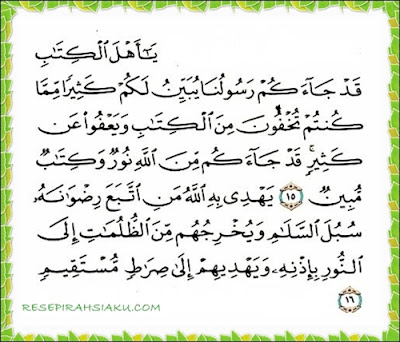 يَٰٓأَهْلَ ٱلْكِتَٰبِ
قَدْ جَآءَكُمْ رَسُولُنَا يُبَيِّنُ لَكُمْ كَثِيرًا مِّمَّا
كُنتُمْ تُخْفُونَ مِنَ ٱلْكِتَٰبِ وَيَعْفُوا۟ عَن
كَثِيرٍۚ قَدْ جَآءَكُم مِّنَ ٱللَّهِ نُورٌ وَكِتَٰبٌ
مُّبِينٌ ١٥ يَهْدِى بِهِ ٱللَّهُ مَنِ ٱتَّبَعَ رِضْوَٰنَهُۥ
سُبُلَ ٱلسَّلَٰمِ وَيُخْرِجُهُم مِّنَ ٱلظُّلُمَٰتِ إِلَى
ٱلنُّورِ بِإِذْنِهِۦ وَيَهْدِيهِمْ إِلَىٰ صِرَٰطٍ مُّسْتَقِيمٍ
١٦
RESEPIRAHSIAKU.COM